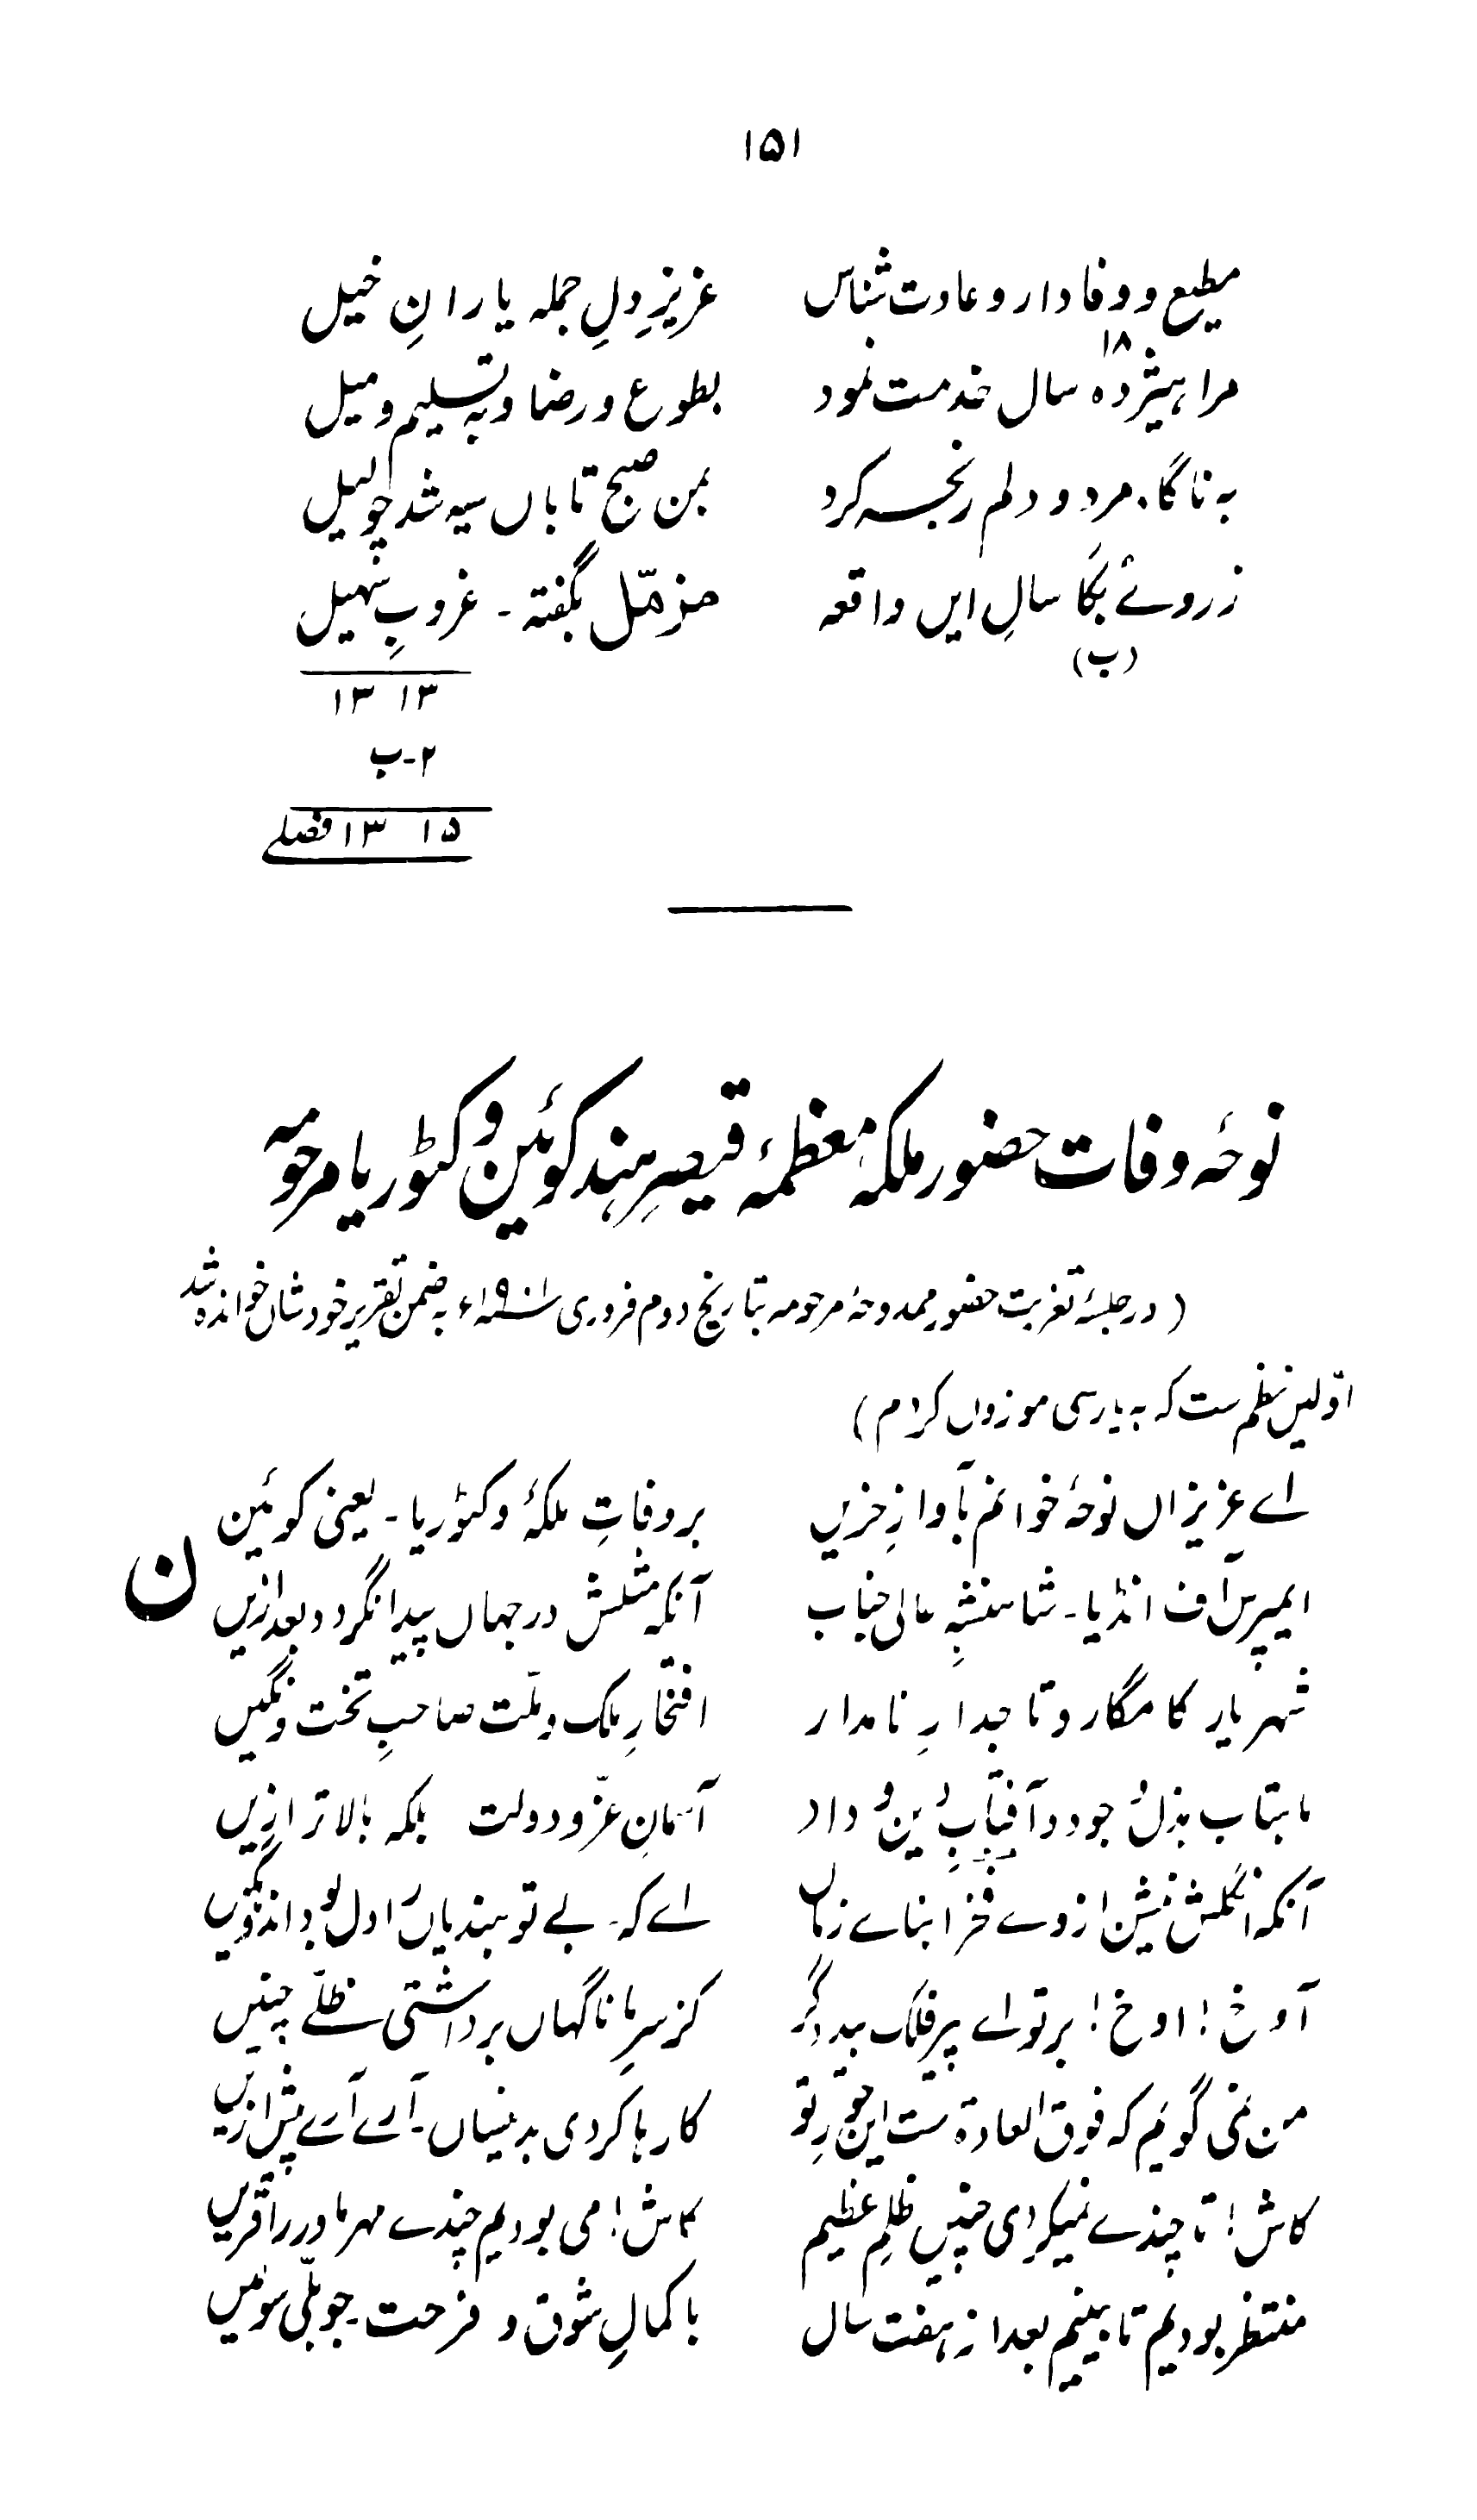 ۱۵۱
مطیع و وفادار و عادت شناس    عزیزِ دلِ جملہ یارانِ خیل
۱۸
مرا ہیژدہ سال خدمت نمود    بطوع و رضا و بہ تسلیم و میل
بہ ناگاہ مرد و دلم رنجہ کرد    بمن صبح تاباں سیہ شد چو لیل
ز روئے بکا سالِ ایں واقعہ    مزمّل بگفتہ ۔ غروبِ سُہیل
(ب)
۱۳ ۱۳
۲-ب
۱۳ ۱۵ فصلی
نوحۂ وفات حضور ملکۂ معظمہ قیصرِ ہند کوئین وکٹوریا مرحومہ
(در جلسۂ تعزیت حضور ممدوحۂ مرحومہ بتاریخ دوم فروری سنہ ۱۹۰۱ء بہ ضمن تقریرِ خودشاں خواندہ شد
اوّلیں نظم ست کہ بہ پارسی موزوں کردم)
اے عزیزاں نوحۂ خوانم بآوازِ حزیں    بر وفاتِ ملکۂ وکٹوریا ۔ یعنی کوئین
ن
ایمپرس آف انڈیا ۔ شاہنشہِ عالی جناب    آنکہ مثلش در جہاں پیدا نگردد بعد ازیں
شہریارِ کامگار و تاجدارِ نامدار    افتخارِ ملک و ملّت صاحبِ تخت و نگیں
ماہتاب بذل و جود و آفتابِ یُمن و داد    آسمانِ عزّ و دولت بلکہ بالاتر ازیں
آنکہ انگلش نیشن از وے فخرِ ابنائے زماں    اے کہ ۔ بے تو ہندیاں را دل بود اندوہگیں
آوخ! اوخ! بر تو اے پیرِ فلک بد دگر    کز سرِ ما ناگہاں برداشتی ظلّے چنیں
من نمی گویم کہ فوق العادۃ ست ایں جورِ تو    کارہا کردی بدینساں ۔ آرے آرے پیش ازیں
کاش! تا چندے نمیکردی چنیں ظلمِ عظیم    کاش! می بودیم چندے مہرِ مادر را قریں
منتظر بودیم تا بینیم بعد از ہفت سال    با کمالِ شوق و فرحت ۔ جوبلیِ سومیں